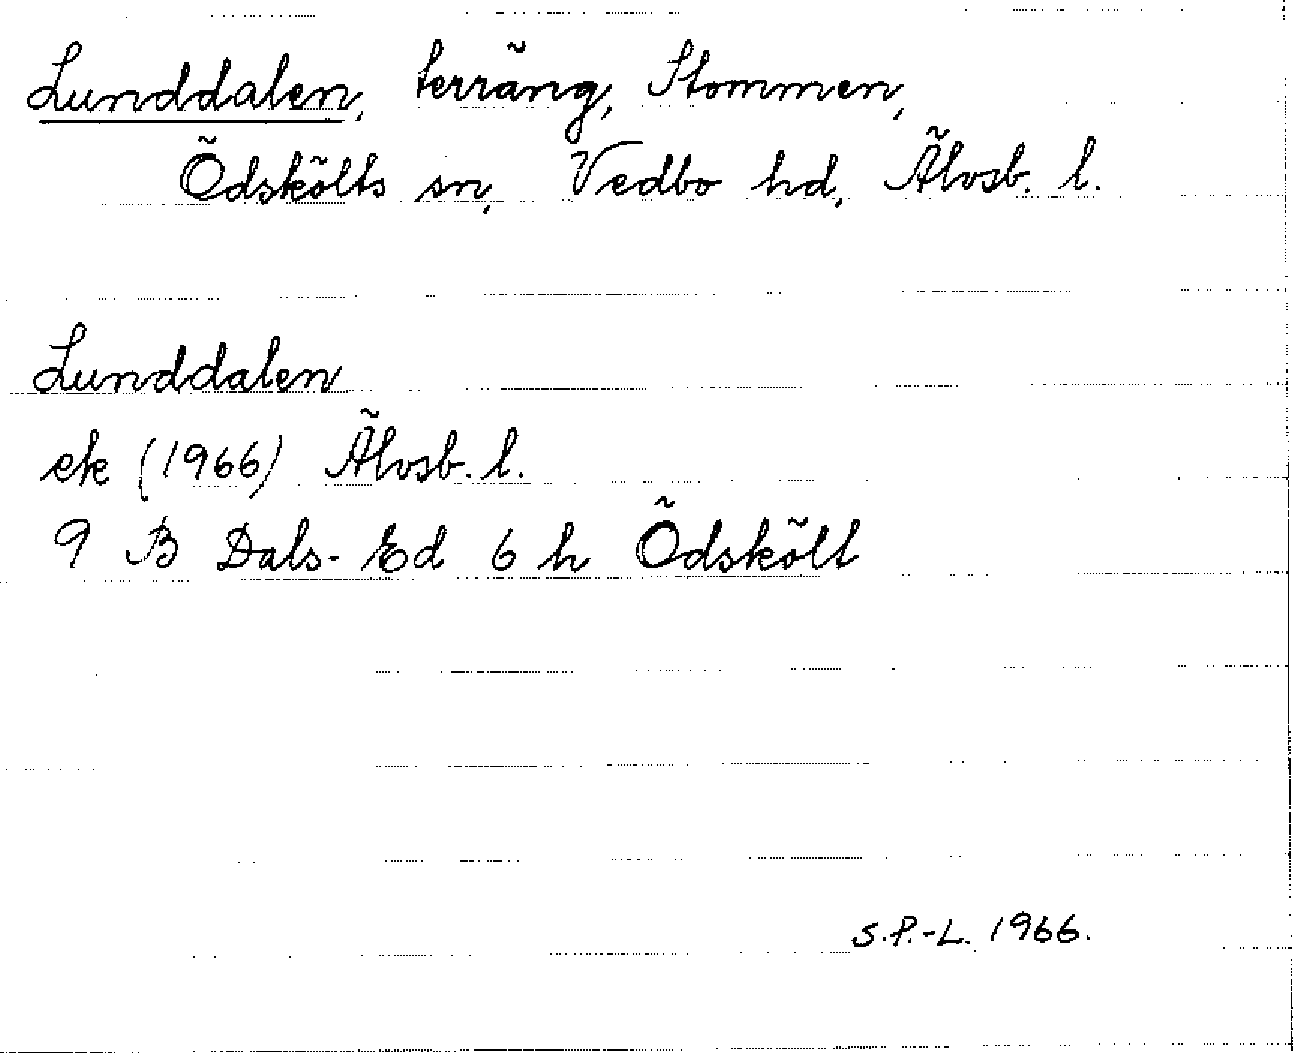 Lunddalen, terräng, Stommen,
Ödskölts sn, Vedbo hd, Älvsb. l.
Lunddalen
ek (1966) Älvsb. l.
9 B Dals-Ed 6 h Ödskölt
S.P.-L. 1966.